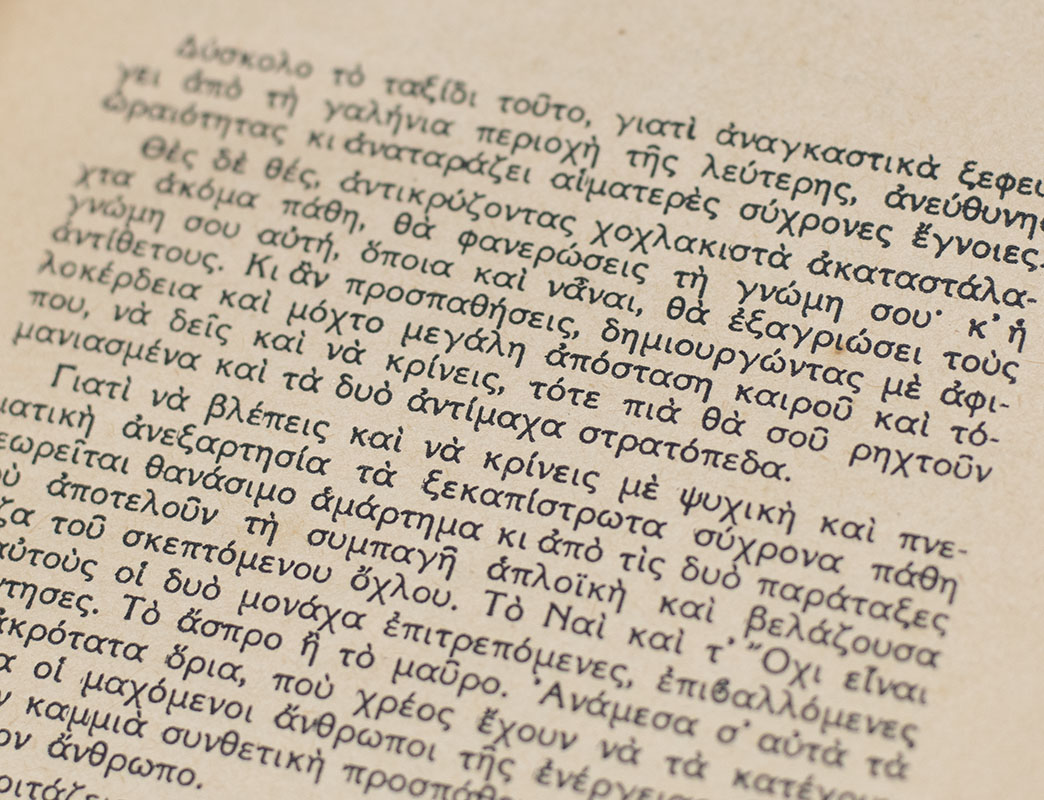 Δύσκολο τὸ ταξίδι τοῦτο, γιατὶ ἀναγκαστικὰ ξεφεύ
γει ἀπὸ τὴ γαλήνια περιοχὴ τῆς λεύτερης, ἀνεύθυνης
ὡραιότητας κι ἀναταράζει αἱματερὲς σύχρονες ἔγνοιες.
Θὲς δὲ θές, ἀντικρύζοντας χοχλακιστὰ ἀκαταστάλα-
χτα ἀκόμα πάθη, θὰ φανερώσεις τὴ γνώμη σου· κ' ἡ
γνώμη σου αὐτή, ὅποια καὶ νἆναι, θὰ ἐξαγριώσει τοὺς
ἀντίθετους. Κι ἂν προσπαθήσεις, δημιουργώντας μὲ ἀφι-
λοκέρδεια καὶ μόχτο μεγάλη ἀπόσταση καιροῦ καὶ τό-
που, νὰ δεῖς καὶ νὰ κρίνεις, τότε πιὰ θὰ σοῦ ρηχτοῦν
μανιασμένα καὶ τὰ δυὸ ἀντίμαχα στρατόπεδα.
Γιατὶ νὰ βλέπεις καὶ νὰ κρίνεις μὲ ψυχικὴ καὶ πνε-
ματικὴ ἀνεξαρτησία τὰ ξεκαπίστρωτα σύχρονα πάθη
εωρεῖται θανάσιμο ἁμάρτημα κι ἀπὸ τὶς δυὸ παράταξες
οὺ ἀποτελοῦν τὴ συμπαγῆ ἁπλοϊκὴ καὶ βελάζουσα
ζα τοῦ σκεπτόμενου ὄχλου. Τὸ Ναὶ καὶ τ' Ὄχι εἶναι
αὐτοὺς οἱ δυὸ μονάχα ἐπιτρεπόμενες, ἐπιβαλλόμενες
ντησες. Τὸ ἄσπρο ἢ τὸ μαῦρο. Ἀνάμεσα σ' αὐτὰ τὰ
ἀκρότατα ὅρια, ποὺ χρέος ἔχουν νὰ τὰ κατέχουν
α οἱ μαχόμενοι ἄνθρωποι τῆς ἐνέργειας
ν καμμιὰ συνθετικὴ προσπάθε
ον ἄνθρωπο.